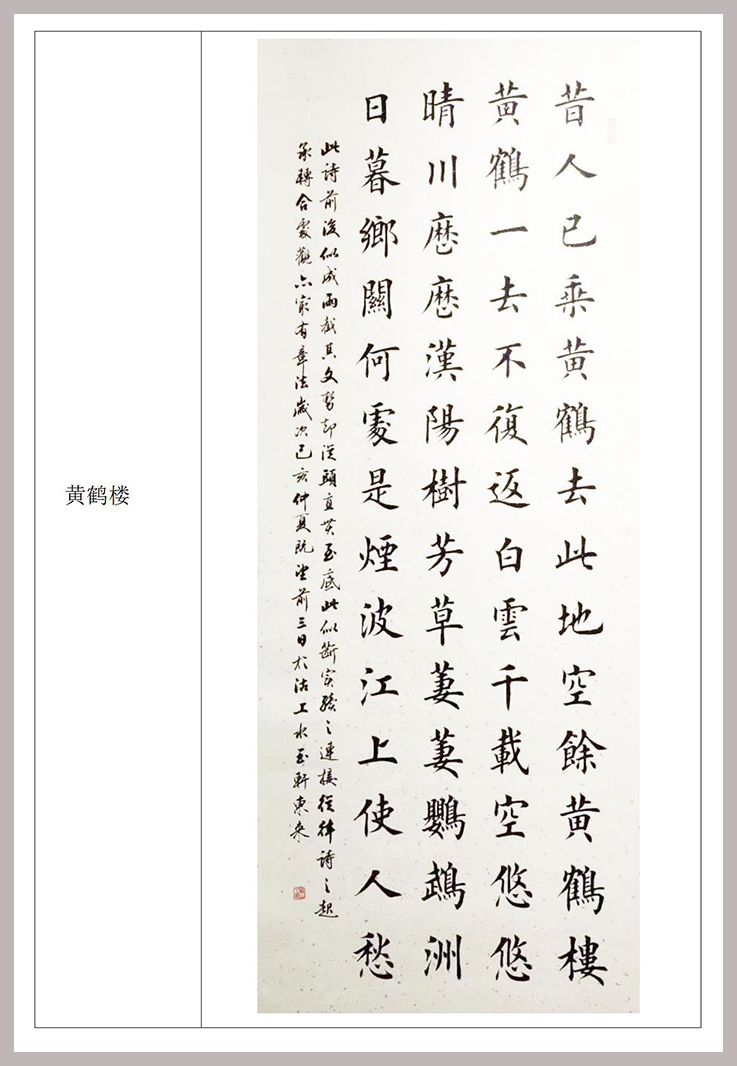 黄鹤楼
昔人已乘黄鶴去此地空餘黄鶴樓
黄鶴一去不復返白雲千載空悠悠
晴川歷歷漢陽樹芳草萋萋鸚鵡洲
日暮鄉關何處是煙波江上使人愁
此詩前後似成兩截其文勢却從頭直貫至底此似斷实續之連接從律詩之起
承轉合處觀亦最有章法歲次己亥仲夏既望前三日於沽上水玉軒東来